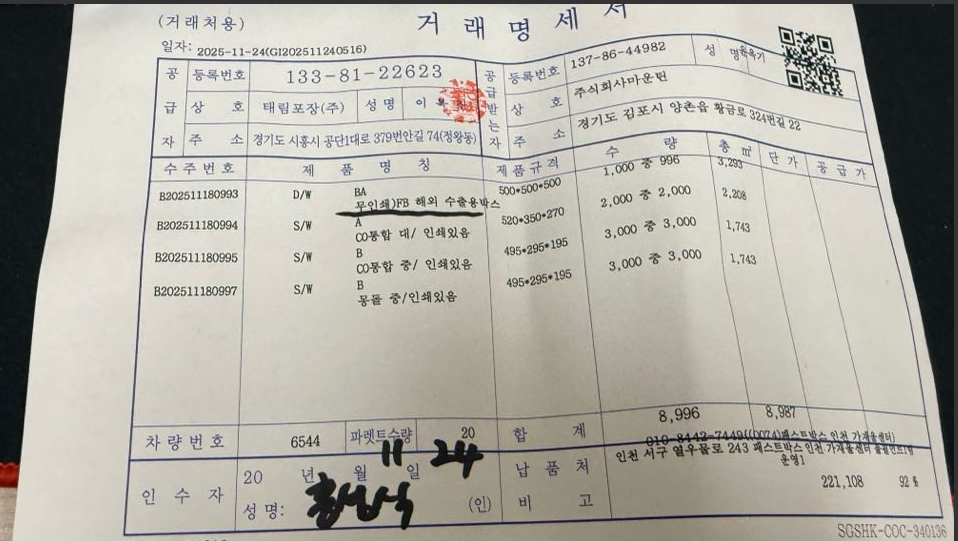 (거래처용)
거 래 명 세 서
일자: 2025-11-24(GI202511240516)
공 급 자
등록번호 133-81-22623
상 호 태림포장(주) 성 명 이
주 소 경기도 시흥시 공단1대로 379번안길 74(정왕동)
공 급 받 는 자
등록번호 137-86-44982 성 명
상 호 주식회사마운틴
주 소 경기도 김포시 양촌읍 황금로 324번길 22
수주번호 제 품 명 칭 제품규격 수 량 총 ㎡ 단 가 공 급 가
B202511180993 D/W BA 500*500*500 1,000 중 996 3,293
무인쇄)FB 해외 수출용박스
B202511180994 S/W A 520*350*270 2,000 중 2,000 2,208
CO통합 대/ 인쇄있음
B202511180995 S/W B 495*295*195 3,000 중 3,000 1,743
CO통합 중/ 인쇄있음
B202511180997 S/W B 495*295*195 3,000 중 3,000 1,743
몽돌 중/인쇄있음
차량번호 6544 파렛트수량 20 합 계 8,996 8,987
인 수 자
20 년 11 월 24 일
성 명: (인)
납 품 처
010-8442-7449((0074)패스트박스 인천
인천 서구 열우물로 243 패스트박스 인천
운영1
비 고 221,108 92 %
SGSHK-COC-340136